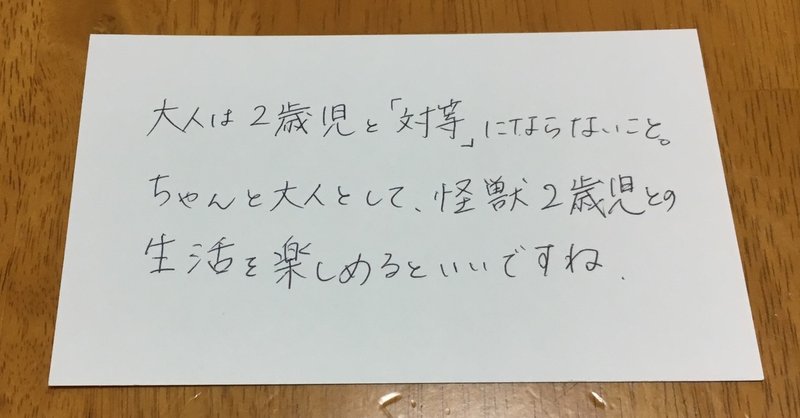 大人は2歳児と「対等」にならないこと。
ちゃんと大人として、怪獣2歳児との
生活を楽しめるといいですね.